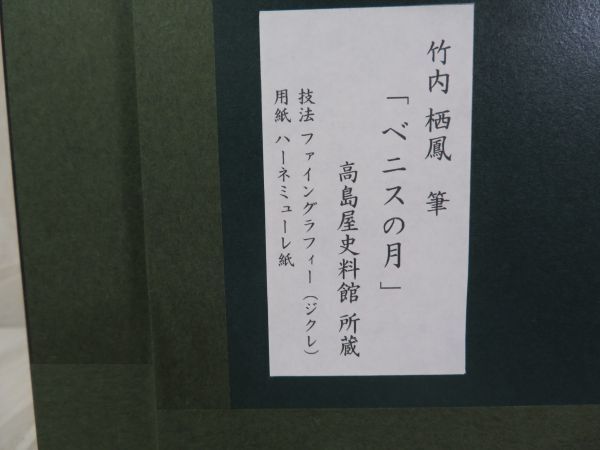 竹内 栖鳳 筆
「ベニスの月」
高島屋史料館 所蔵
技法 ファイングラフィー(ジクレ)
用紙 ハーネミューレ紙